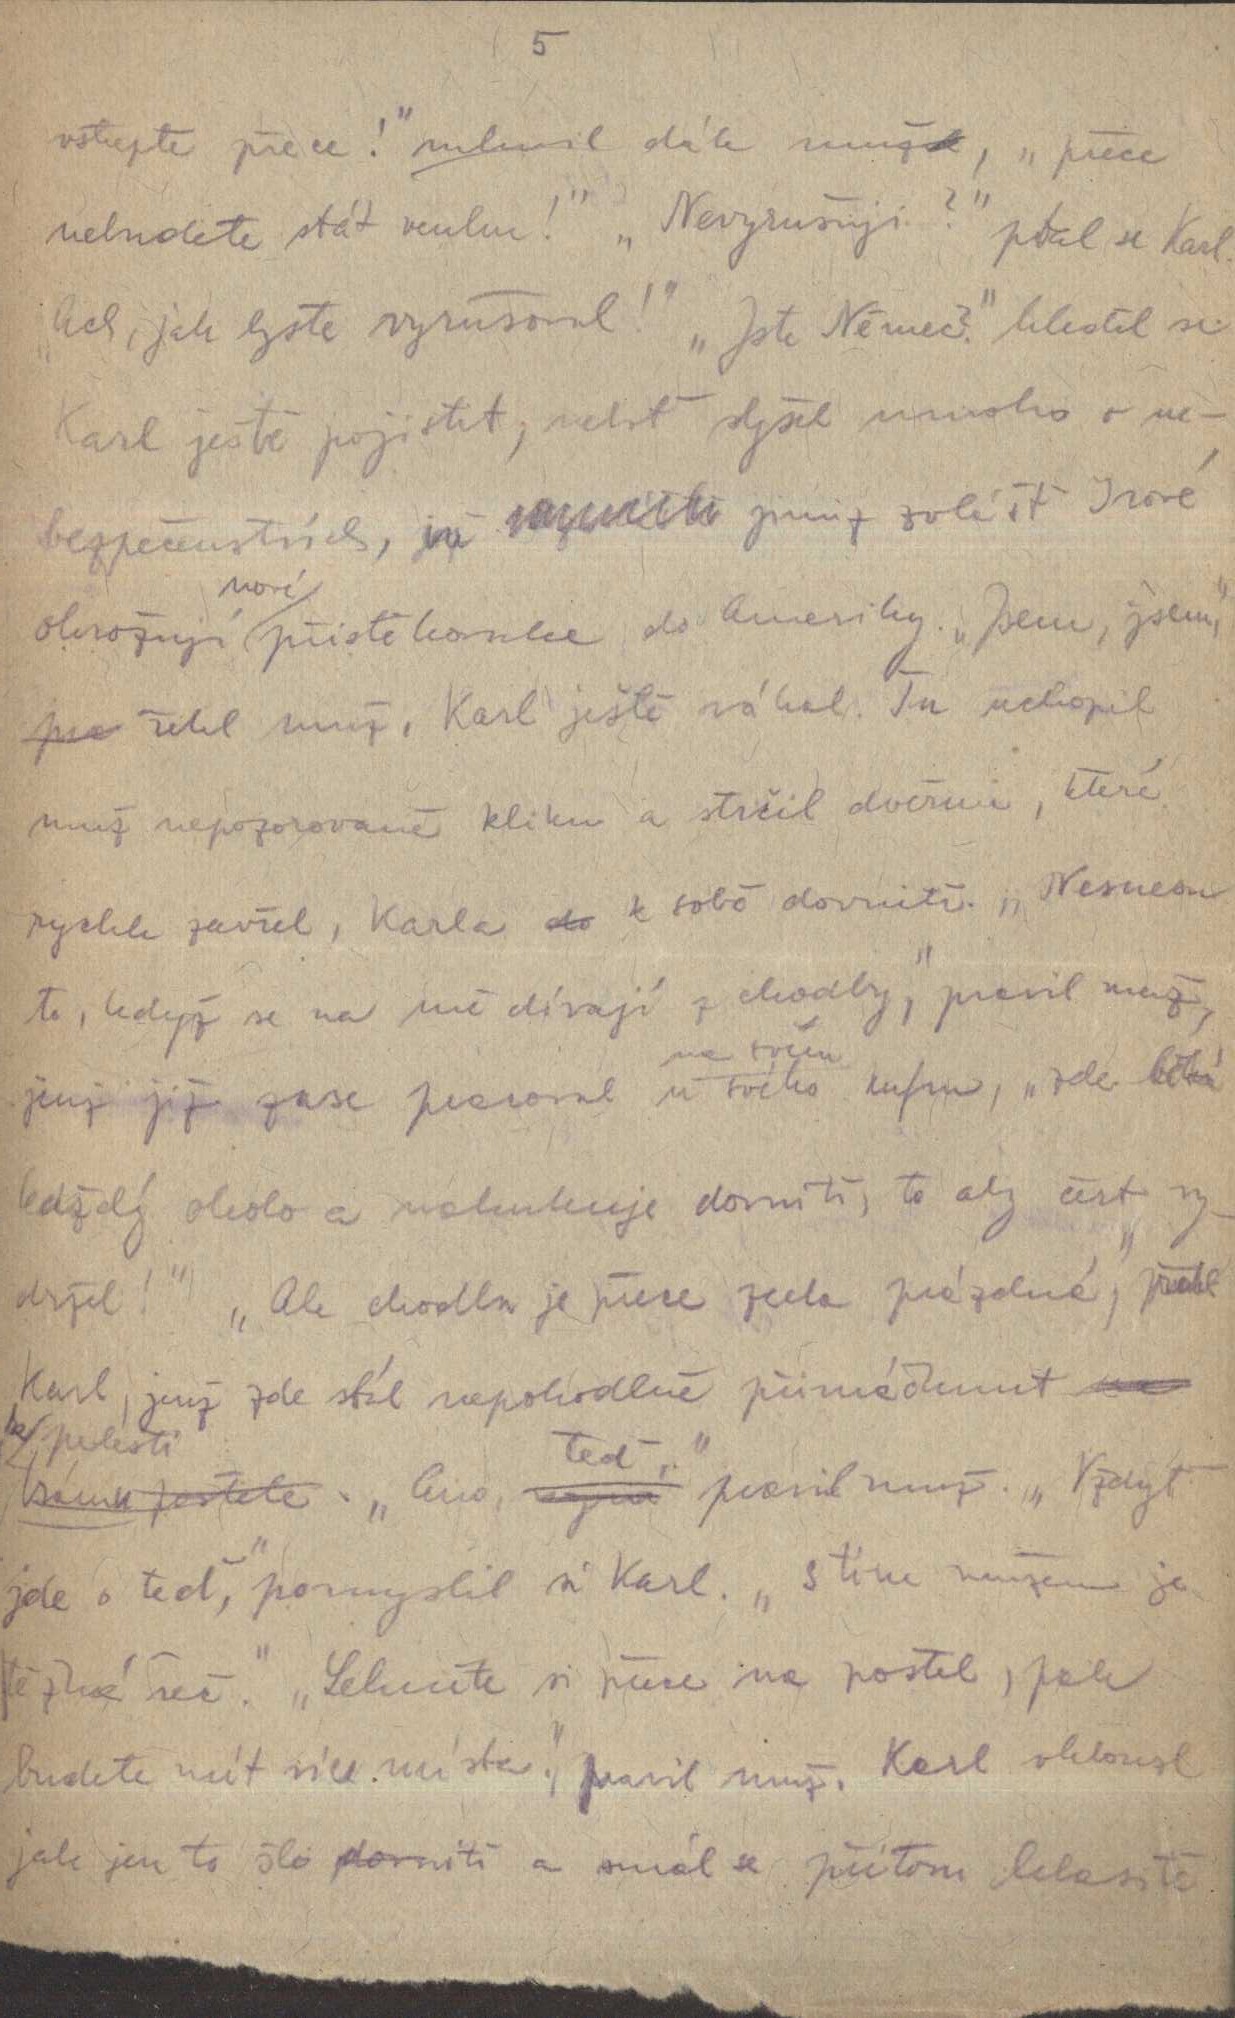 5
vstupte přece!" mluvil dále muž, „přece
nebudete stát venku!" „Nevyrušuji?" ptal se Karl.
„Ach, jak byste vyrušoval!" „Jste Němec?" hleděl se
Karl ještě pojistit, neboť slyšel mnoho o ne-
bezpečenstvích, jimiž zvlášť Irové
nové
ohrožují přistěhovalce do Ameriky. „Jsem, jsem,"
řekl muž. Karl ještě váhal. Tu uchopil
muž nepozorovaně kliku a strčil dveřmi, které
rychle zavřel, Karla do k sobě dovnitř. „Nesnesu
to, když se na mě dívají z chodby," pravil muž,
na svém
jenž již zase pracoval u svého kufru, „zde běhá
každý okolo a nakukuje dovnitř, to aby čert vy-
držel!" „Ale chodba je přece zcela prázdná," řekl
Karl, jenž zde stál nepohodlně přimáčknut na
k pelesti
rámu postele. „Ano, teď," pravil muž. „Vždyť
jde o teď," pomyslil si Karl. „S tím mužem je
těžká řeč." „Lehněte si přece na postel, pak
budete mít více místa," pravil muž. Karl vklouzl
jak jen to šlo dovnitř a smál se přitom hlasitě